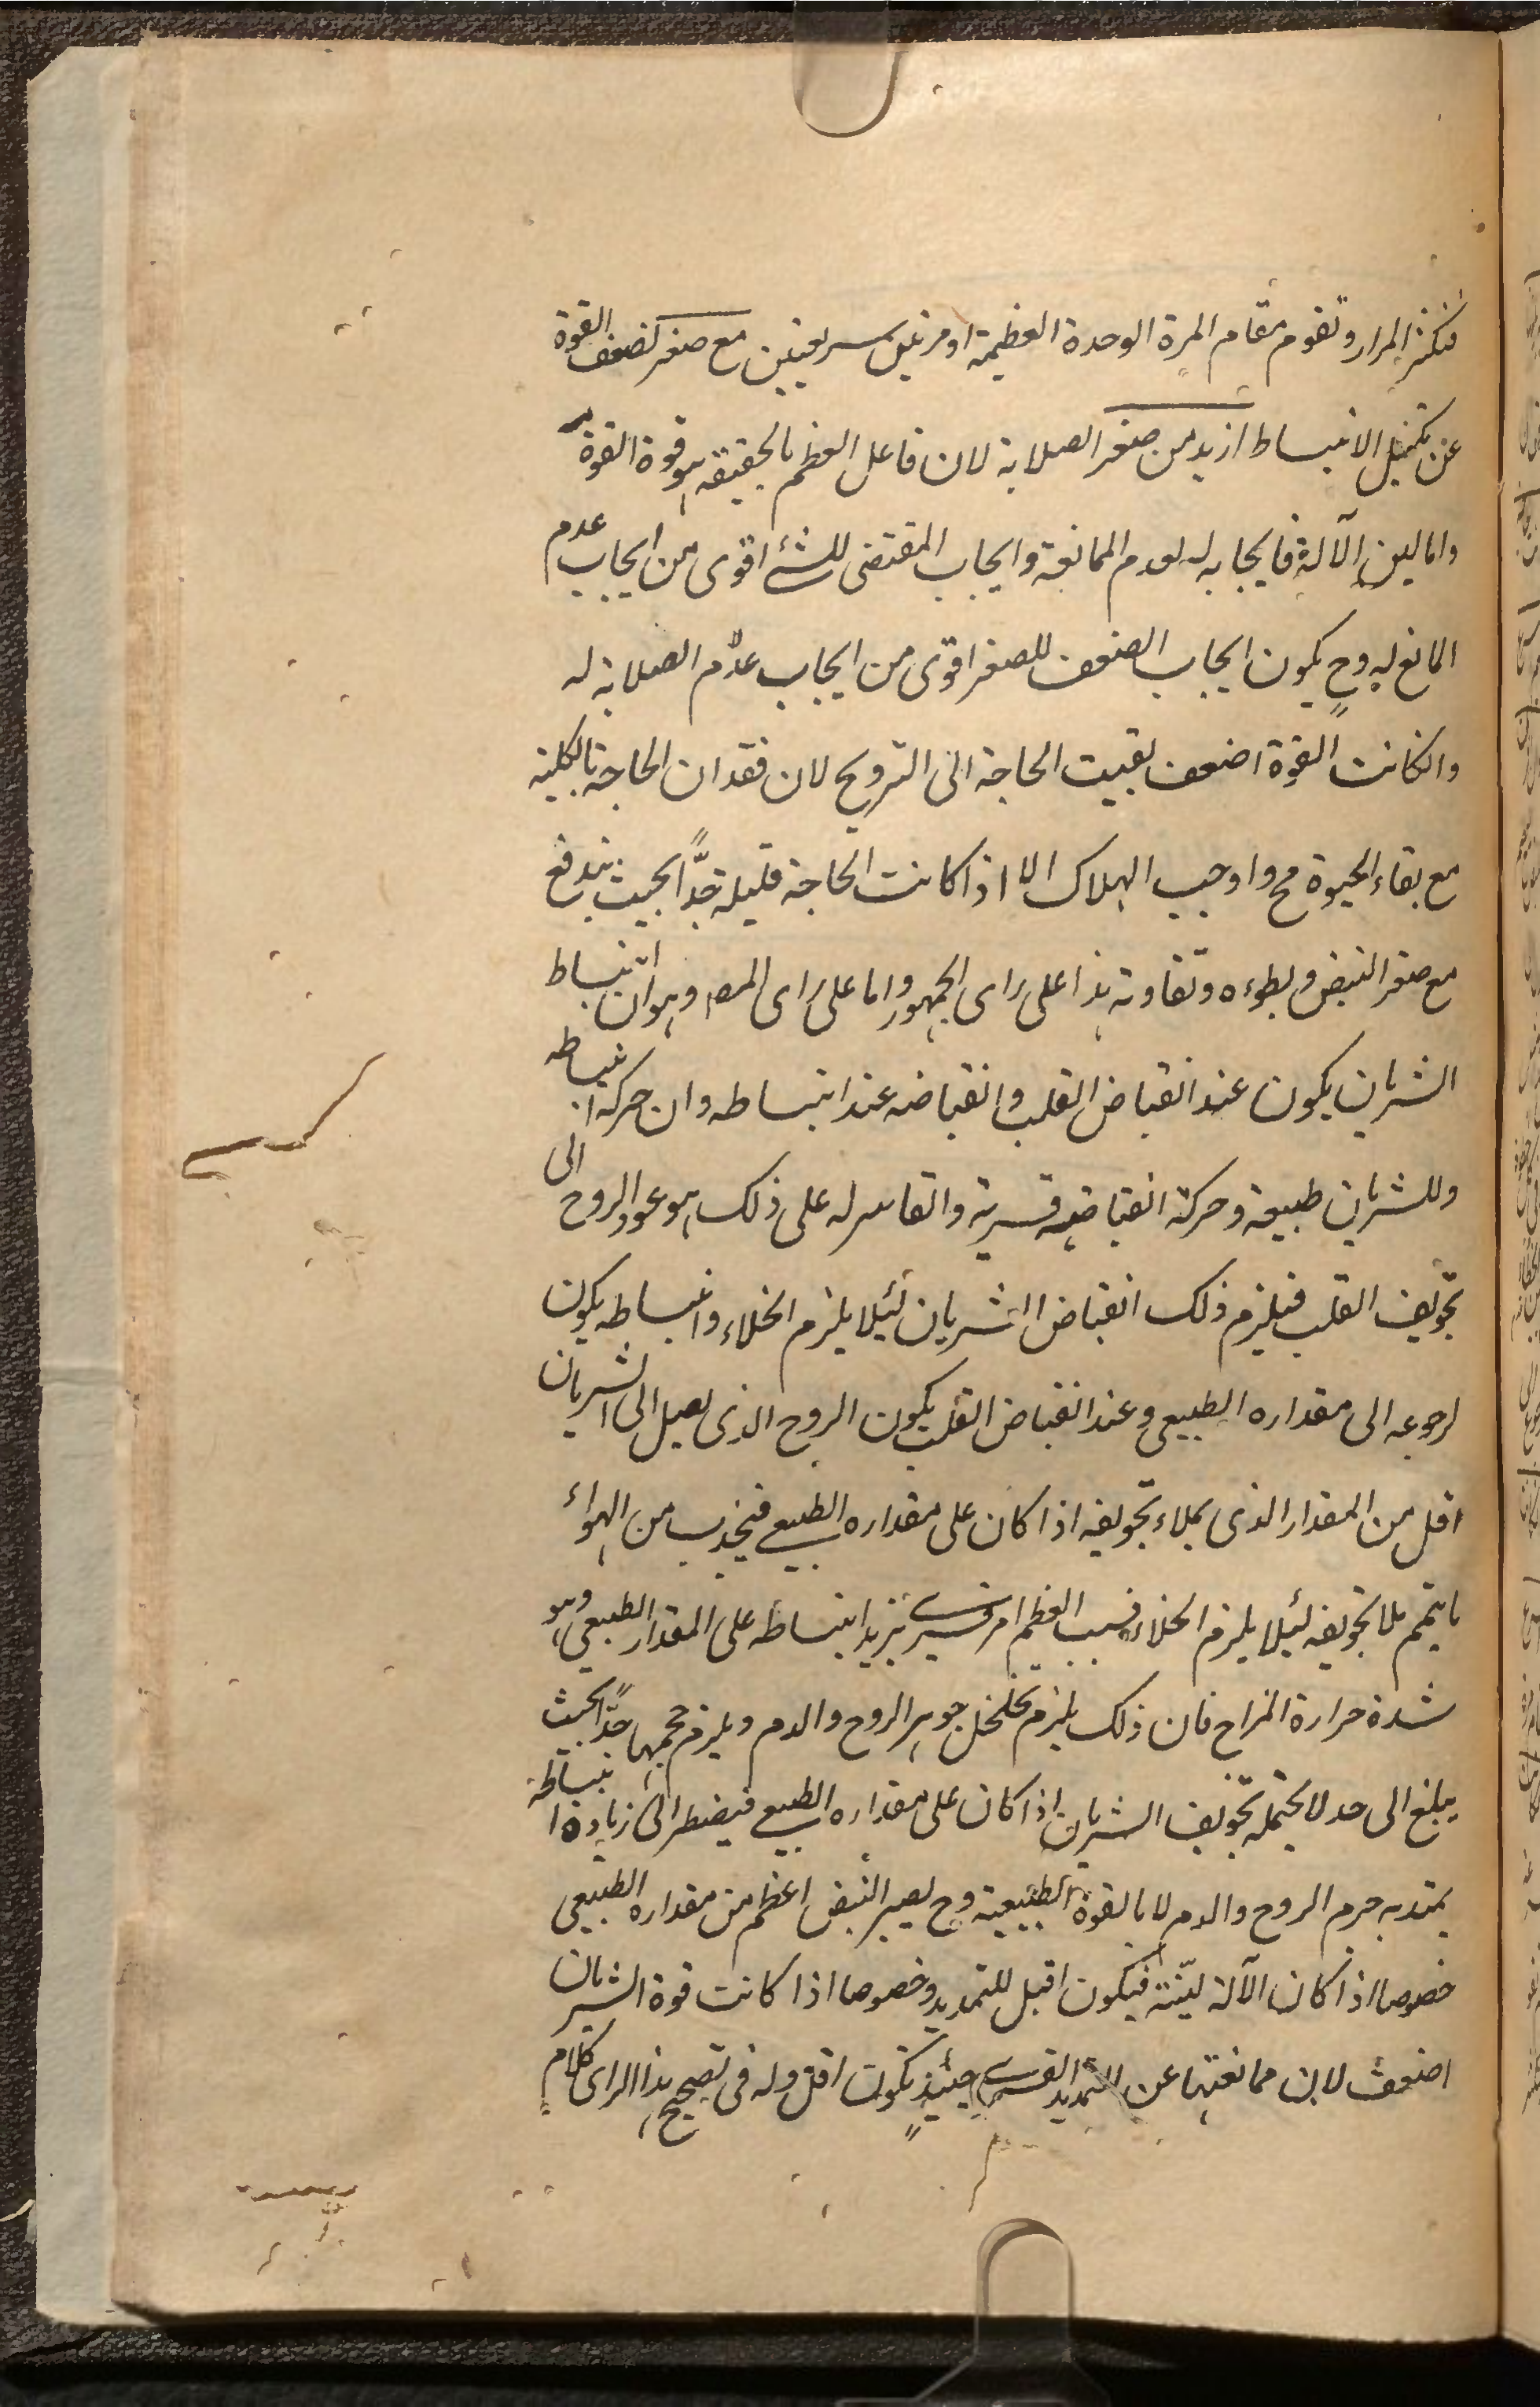 فتكثر المرار وتقوم مقام المرة الوحدة العظيمة او مرتين سريعتين مع صغر لضعف القوة
عن تكميل الانبساط ازيد من صغر الصلابة لان فاعل العظم بالحقيقة هو قوة القوة
واما لين الآلة فايجابه له لعدم الممانعة وايجاب المقتضى للشئ اقوى من ايجاب عدم
المانع له وح يكون ايجاب الضعف للصغر اقوى من ايجاب عدم الصلابة له
وانكانت القوة اضعف بقيت الحاجة الى الترويح لان فقدان الحاجة بالكلية
مع بقاء الحيوة مح واوجب الهلاك الا اذا كانت الحاجة قليلة جدًّا بحيث يندفع
مع صغر النبض وبطوءه وتفاوته هذا على راى الجمهور واما على راى المصـ وهو ان انبساط
الشريان يكون عند انقباض القلب وانقباضه عند انبساطه وان حركة انبساطه
وللشريان طبيعة وحركة انقباضه قسرية والقاسر له على ذلك هو عود الروح الى
تجويف القلب فيلزم ذلك انقباض الشريان لئيلا يلزم الخلاء وانبساطه يكون
لرجوعه الى مقداره الطبيعى وعند انقباض القلب يكون الروح الذى يصل الى الشريان
اقل من المقدار الذى يملاء تجويفه اذا كان على مقداره الطبيعى فيجذب من الهواء
ما يتمم ملا تجويفه لئيلا يلزم الخلاء فسبب العظم امر قسرى يزيد انبساطه على المقدار الطبيعى وهو
شدة حرارة المزاج فان ذلك يلزم تخلخل جوهر الروح والدم ويلزم حجمها جدًّا بحيث
يبلغ الى حد لا يحتمله تجويف الشريان اذا كان على مقداره الطبيعى فيضطر الى زيادة انبساطه
يمتد به جرم الروح والدم لا بالقوة الطبيعية وح يصير النبض اعظم من مقداره الطبيعى
خصوصا اذا كان الآلة ليّنة فيكون اقبل للتمديد وخصوصا اذا كانت قوة الشريان
اضعف لان ممانعتها عن التمديد القسرى حينئذ تكون اقل وله فى تصحيح هذا الراى كلام